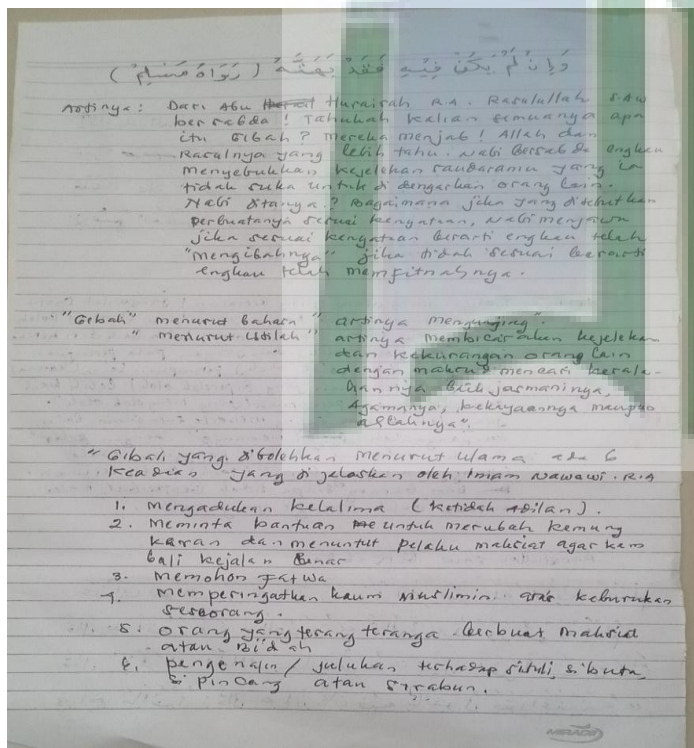 وَإِنْ لَمْ يَكُنْ فِيْهِ فَقَدْ بَهَتَّهُ ( رَوَاهُ مُسْلِمْ )
Artinya : Dari Abu Hurairah R.A. Rasulullah S.AW
bersabda ! Tahukah kalian semuanya apa
itu Gibah ? mereka menjab ! Allah dan
Rasulnya yang lebih tahu. Nabi bersabda engkau
menyebukkan kejelekan saudaramu yang ia
tidak suka untuk di dengarkan orang lain.
Nabi ditanya ? Bagaimana jika yang disebutkan
perbuatanya sesuai kenyataan, Nabi menjawab
jika sesuai kenyataan berarti engkau telah
"mengibahnya" jika tidak sesuai berarti
engkau telah memfitnahnya.
"Gibah" menurut bahasa " artinya mengunjing".
" menurut istilah " artinya membicarakan kejelekan
dan kekurangan orang lain
dengan maksud mencari kesala-
hannya baik jasmaninya,
Agamanya, kekayaannya maupun
"Gibah yang dibolehkan menurut ulama ada 6
keadaan yang di jelaskan oleh Imam Nawawi. R.A
1. mengadukan kelalima (ketidah adilan).
2. Meminta bantuan untuk merubah kemung
karan dan menuntut pelaku maksiat agar kem
bali kejalan benar
3. Memohon Fatwa
4. Memperingatkan kaum Muslimin atas keburukan
seseorang.
5. orang yang terang teranga berbuat maksiat
atau Bid'ah
6. pengenalan / julukan terhadap situli, sibuta,
si pincang atau sirabun.
MIRAGE